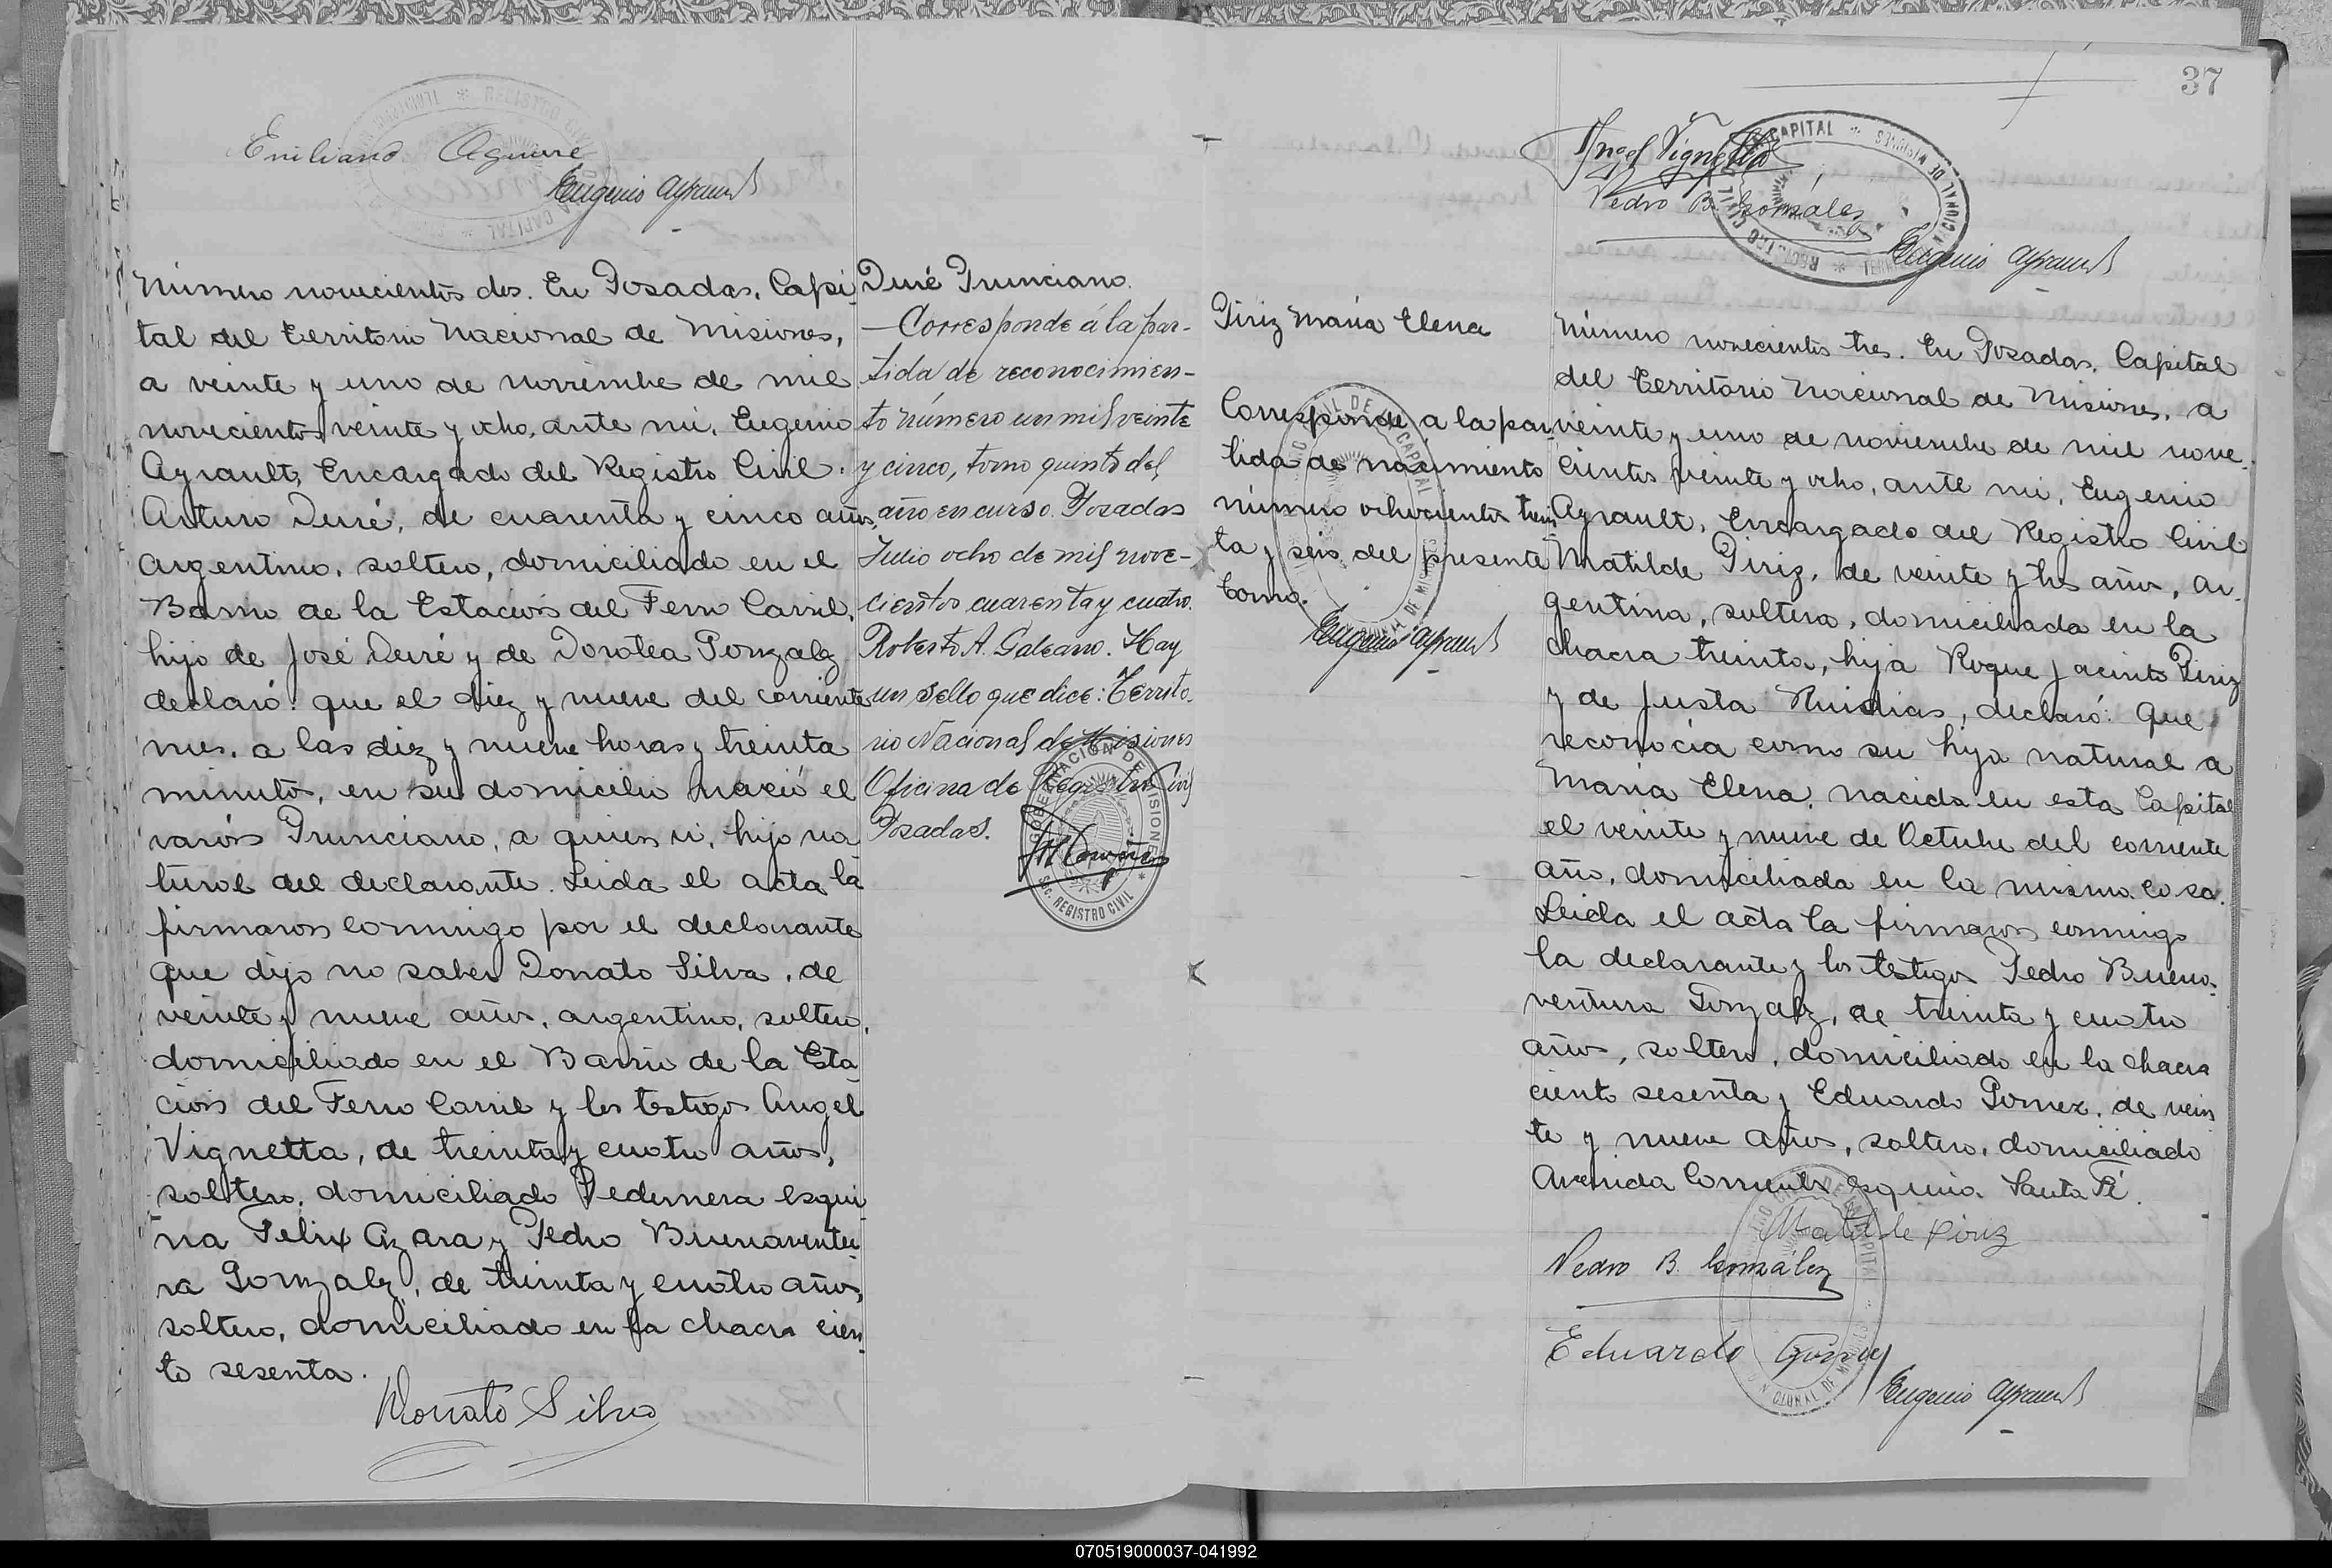 Emiliano Aguirre
Eugenio Ayrault
Número novecientos dos. En Posadas, Capi-
tal del Territorio Nacional de Misiones,
a veinte y uno de noviembre de mil
novecientos veinte y ocho, ante mi, Eugenio
Ayrault, Encargado del Registro Civil.
Arturo Deiré, de cuarenta y cinco años,
argentino, soltero, domiciliado en el
Barrio de la Estación del Ferro Carril,
hijo de José Deiré y de Dorotea Gonzalez
declaró: que el diez y nueve del corriente
mes, a las diez y nueve horas y treinta
minutos, en su domicilio nació el
varón Prunciano, a quien vi, hijo na
tural del declarante. Leida el acta la
firmaron conmigo por el declarante
que dijo no saber Donato Silva, de
veinte y nueve años, argentino, soltero,
domiciliado en el Barrio de la Esta
ción del Ferro Carril y los testigos Angel
Vignetta, de treinta y cuatro años,
soltero, domiciliado Pedernera esqui
na Felix Azara y Pedro Buenaventu-
ra Gonzalez, de treinta y cuatro años,
soltero, domiciliado en la chacra cien-
to sesenta.
Donato Silva
Deiré Prunciano.
— Corresponde á la par-
tida de reconocimien-
to número un mil veinte
y cinco, tomo quinto del
año en curso. Posadas
Julio ocho de mil nove-
cientos cuarenta y cuatro.
Roberto A. Galeano. Hay
un sello que dice: Territo-
rio Nacional de Misiones
Oficina de Registro Civil
Posadas.
GOBERNACIÓN DE MISIONES
Sc. REGISTRO CIVIL
37
Angel Vignetta
Pedro B. González
Eugenio Ayrault
REGISTRO CIVIL DE LA CAPITAL
Piriz María Elena
Corresponde a la par
tida de nacimiento
número ochocientos trein
ta y seis del presente
tomo.
Eugenio Ayrault
Número novecientos tres. En Posadas, Capital
del Territorio Nacional de Misiones, a
veinte y uno de noviembre de mil nove-
cientos veinte y ocho, ante mi, Eugenio
Ayrault, Encargado del Registro Civil
Matilde Piriz, de veinte y tres años, ar-
gentina, soltera, domiciliada en la
chacra treinta, hija Roque Jacinto Piriz
y de Justa, declaró: Que
reconocía como su hija natural a
María Elena, nacida en esta Capital
el veinte y nueve de Octubre del corriente
año, domiciliada en la misma casa.
Leida el acta la firmaron conmigo
la declarante y los testigos Pedro Buena-
ventura Gonzalez, de treinta y cuatro
años, soltero, domiciliado en la chacra
ciento sesenta y Eduardo Gomez, de vein
te y nueve años, soltero, domiciliado
Avenida Corrientes esquina Santa Fé.
Matilde Piriz
Pedro B. González
Eduardo Gómez
Eugenio Ayrault
070519000037-041992